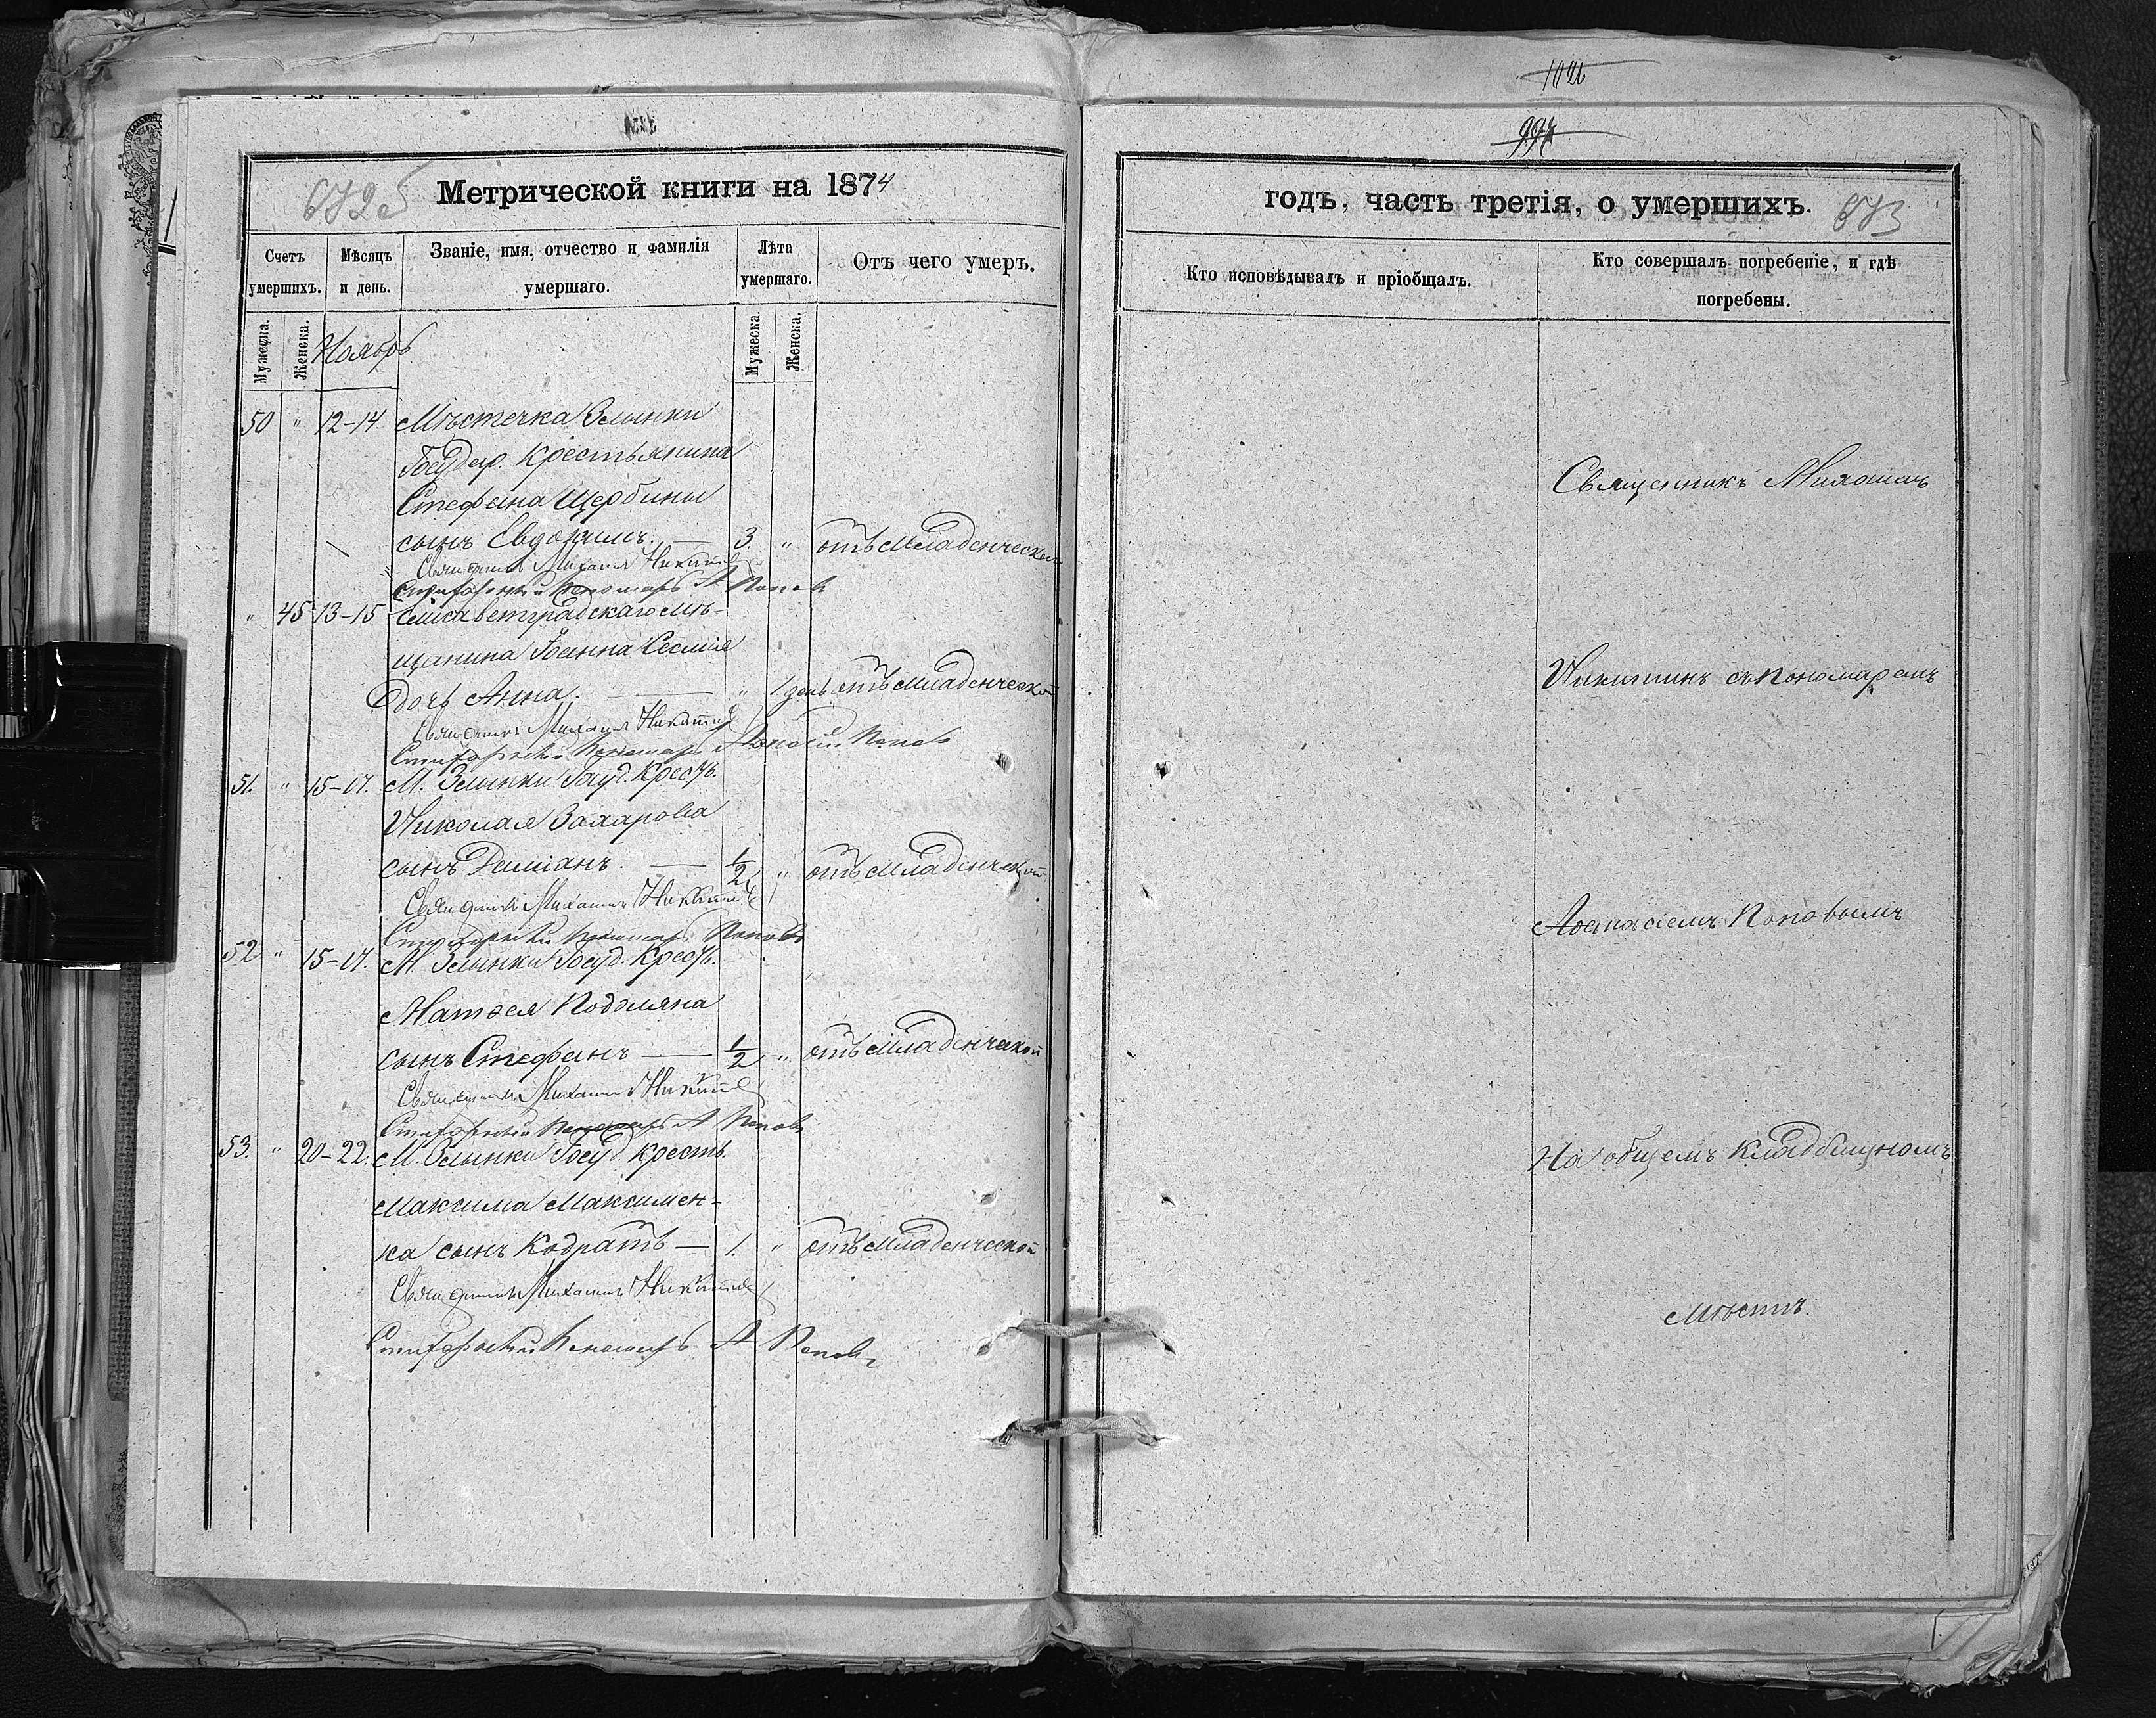 1026
994
672б
Метрической книги на 1874
Счетъ умершихъ.
Мѣсяцъ и день.
Званіе, имя, отчество и фамилія умершаго.
Лѣта умершаго.
Отъ чего умеръ.
Мужеска.
Женска.
Ноябрь
Мужеска.
Женска.
50 " 12-14. Мѣстечка Злынки
Государ. Крестьянина
Стефана Щербины
сынъ Евдокимъ. — 3. " отъ младенческой
Священникъ Михаилъ Никитинъ
Стихарный Пономарь А Поповъ
" 45 13-15 Елисаветградскаго мѣ-
щанина Іоанна
дочь Анна. — " 1 день отъ младенческой
Священникъ Михаилъ Никитинъ
Стихарный Пономарь Афанасій Поповъ
51. " 15-17. М. Злынки Госуд. Крестъ.
Николая Захарова
сынъ Даміанъ. — 1/2 " отъ младенческой
Священникъ Михаилъ Никитинъ
Стихарный Пономарь Поповъ
52 " 15-17. М. Злынки Госуд. Крестъ.
Матѳея Подоляна
сынъ Стефанъ — 1/2 " отъ младенческой
Священникъ Михаилъ Никитинъ
Стихарный Пономарь А Поповъ
53. " 20-22. М. Злынки Госуд. крестъ.
Максима Максимен-
ка сынъ Кодратъ — 1. " отъ младенческой
Священникъ Михаилъ Никитинъ
Стихарный Пономарь А Поповъ
годъ, часть третія, о умершихъ.
673
Кто исповѣдывалъ и пріобщалъ.
Кто совершалъ погребеніе, и гдѣ
погребены.
Священникъ Михаилъ
Никитинъ съ пономаремъ
Аѳанасіемъ Поповымъ
На общемъ кладбищномъ
мѣстѣ.